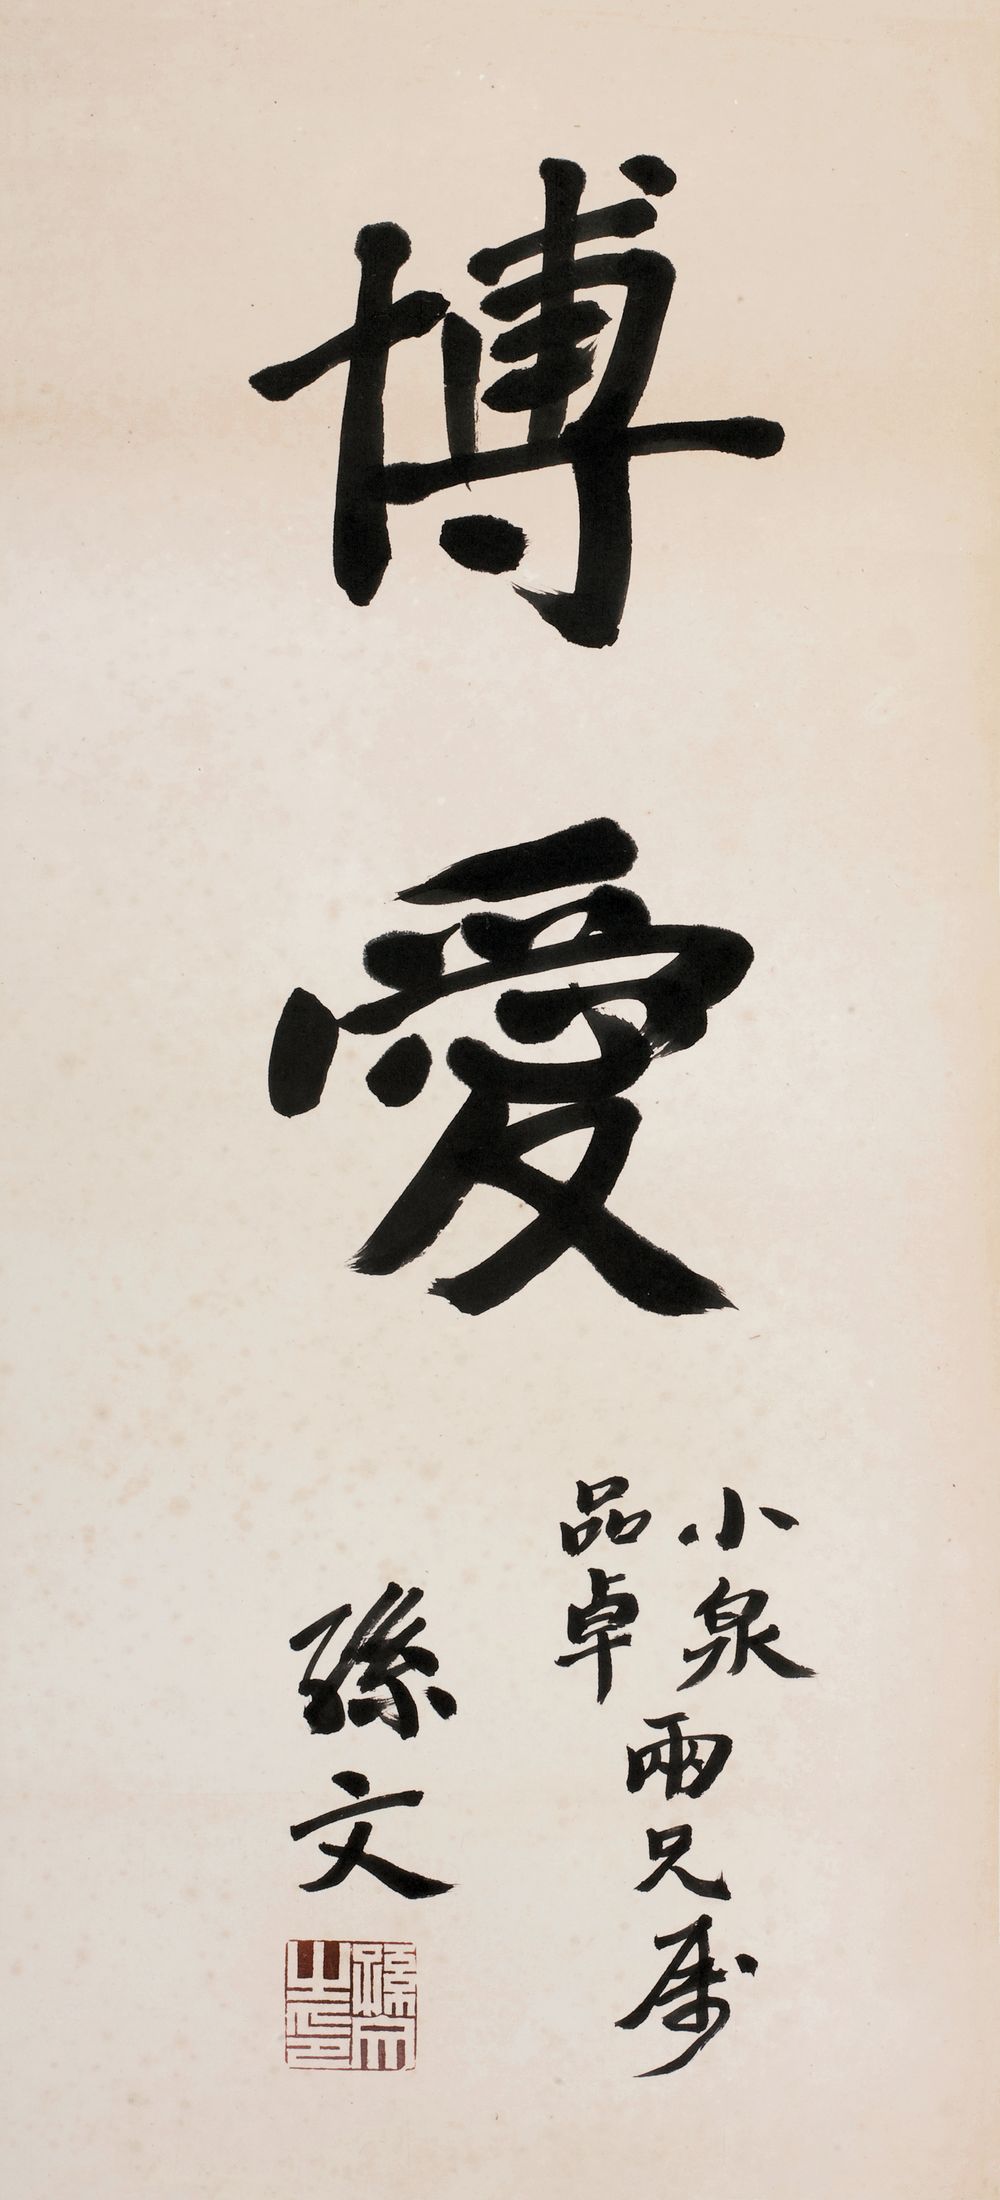 博愛
小泉
品卓
兩兄屬
孫文
孫文之印